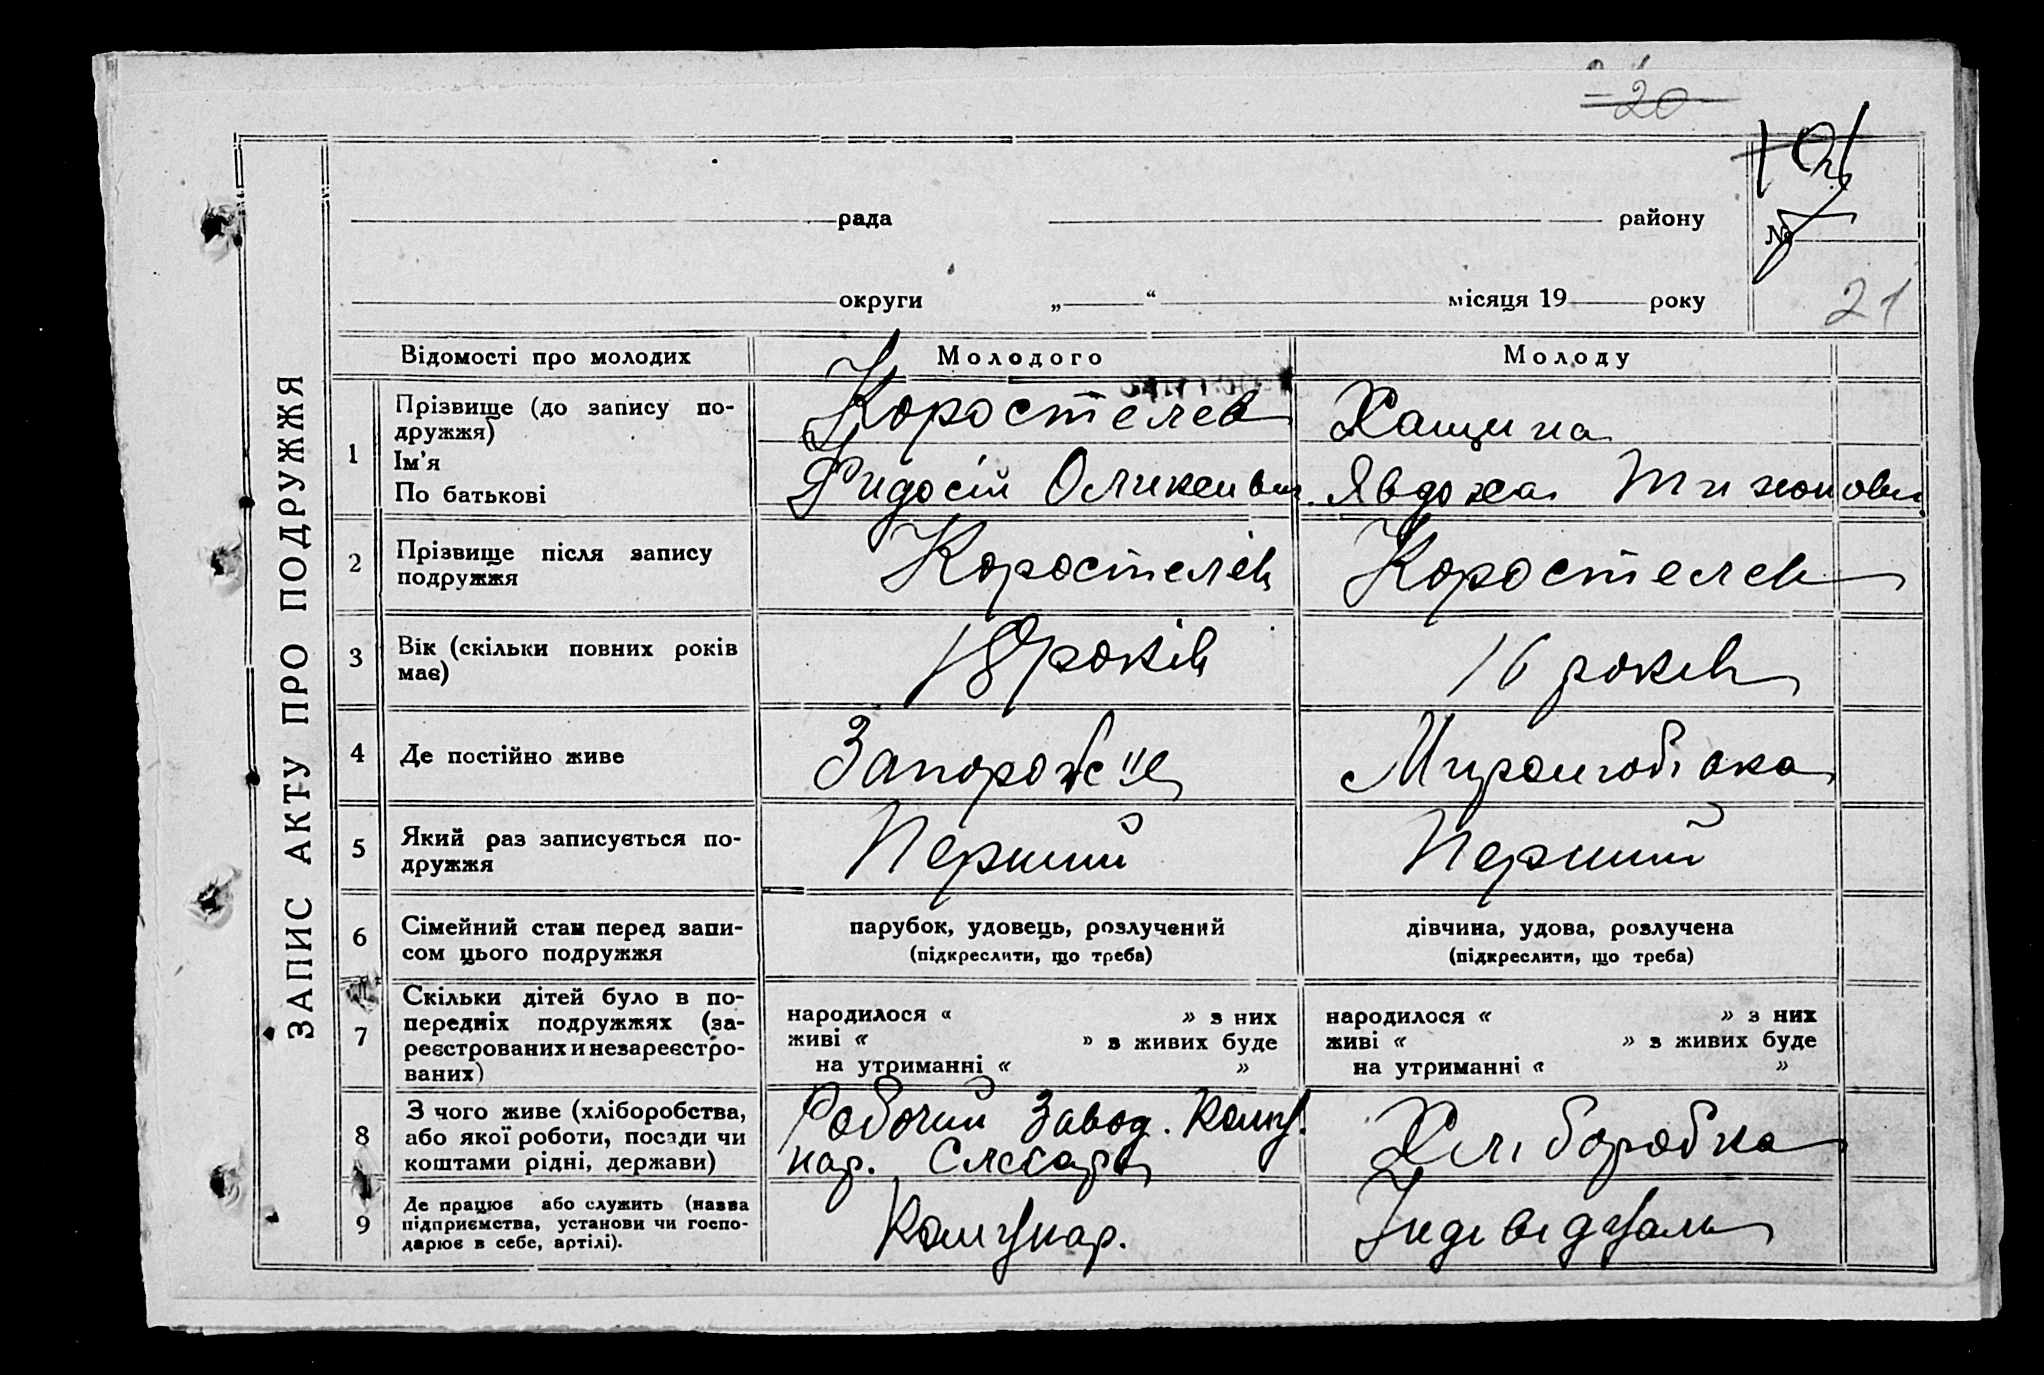 20
101
ЗАПИС АКТУ ПРО ПОДРУЖЖЯ
рада району №
округи „ “ місяця 19 року
21
Відомості про молодих Молодого Молоду
1 Прізвище (до запису по-
дружжя)
Ім'я
По батькові
Коростелев Хащина
Фидосій Явдоха
2 Прізвище після запису
подружжя
Коростелів Коростелев
3 Вік (скільки повних років
має)
18 років 16 років
4 Де постійно живе
Запоріжже
5 Який раз записується по-
дружжя
Перший Перший
6 Сімейний стан перед запи-
сом цього подружжя
парубок, удовець, розлучений
(підкреслити, що треба)
дівчина, удова, розлучена
(підкреслити, що треба)
7 Скільки дітей було в по-
передніх подружжях (за-
реєстрованих и незареєстро-
ваних)
народилося « » з них
живі « » з живих буде
на утриманні « »
народилося « » з них
живі « » з живих буде
на утриманні « »
8 З чого живе (хліборобства,
або якої роботи, посади чи
коштами рідні, держави)
Робочий Завод. Кому.
нар. Слєсарь
Хліборобка
9 Де працює або служить (назва
підприємства, установи чи госпо-
дарює в себе, артілі).
Комунар. Індівідуаль